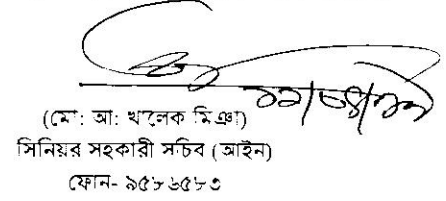 (মো: আ: খালেক মিঞা)
সিনিয়র সহকারী সচিব (আইন)
ফোন- ৯৫৮৬৫৮৩